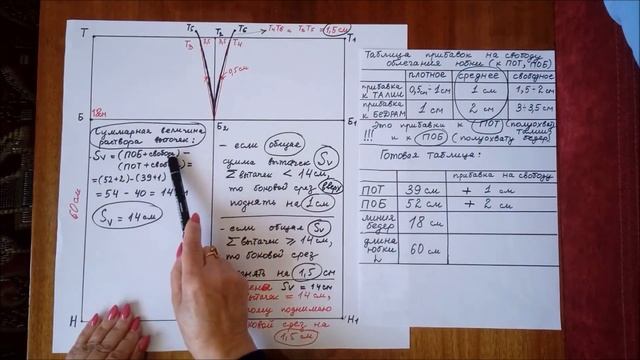 Т
Т5
Т2
Т6
Т3
3,5
3,5
Т4
0,5см
Т4Т6 = Т3Т5 = 1,5 см
Т1
Б
18см
Б2
Б1
Суммарная величина
раствора вытачек:
Sv = (ПОБ+свобод) −
(ПОТ+свобод) =
= (52+2) − (39+1)
= 54 − 40 = 14
Sv = 14 см
60 см
Н
Н1
– если общая
сумма вытачек Sv
Σ вытачек < 14 см,
то боковой срез вверх
поднять на 1 см
– если общая Sv
Σ вытачек ⩾ 14 см,
то боковой срез
на 1,5 см
Sv = 14 см
вытачек = 14 см,
поднимаю
боковой срез на
1,5 см
Таблица прибавок на свободу
облегания юбки (к ПОТ, ПОБ)
плотное среднее свободное
прибавка к ТАЛИИ 0,5см-1см 1 см 1,5-2 см
прибавка к БЕДРАМ 1 см 2 см 3-3,5см
Это прибавки к ПОТ (полуобхвату талии)
!!! и к ПОБ (полуобхвату бедер)
Готовая таблица:
прибавка на свободу
ПОТ 39 см + 1 см
ПОБ 52 см + 2 см
линия бедер 18 см
длина юбки 60 см